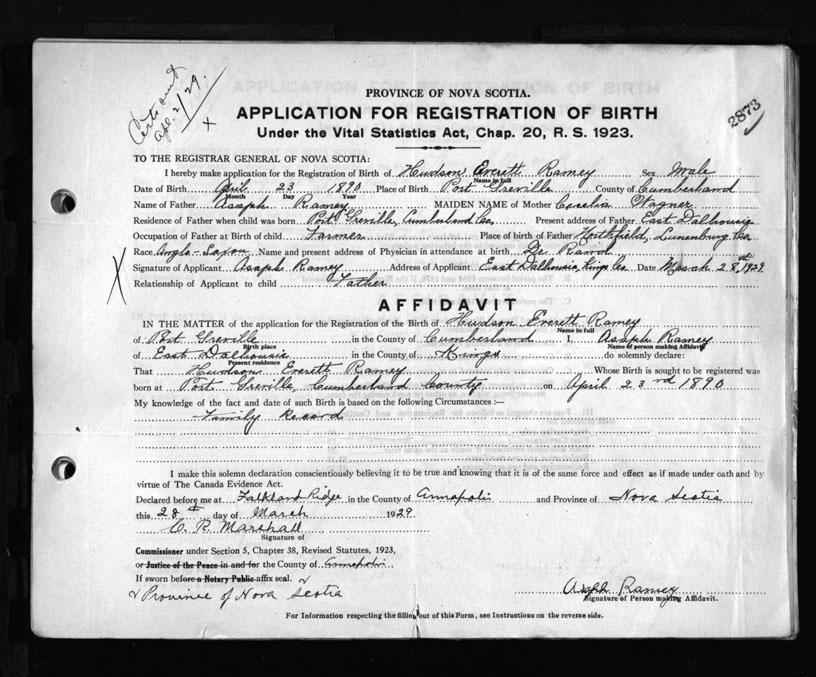 Certs sent
Apl. 2/29.
x
2873
PROVINCE OF NOVA SCOTIA.
APPLICATION FOR REGISTRATION OF BIRTH
Under the Vital Statistics Act, Chap. 20, R. S. 1923.
TO THE REGISTRAR GENERAL OF NOVA SCOTIA:
I hereby make application for the Registration of Birth of Hudson Everett Ramey Sex Male
Name in full
Date of Birth April 23 1890 Place of Birth Port Greville County of Cumberland
Month Day Year
Name of Father Asaph Ramey MAIDEN NAME of Mother Wagner
Residence of Father when child was born Port Greville, Cumberland Co. Present address of Father East Dalhousie
Occupation of Father at Birth of child Farmer Place of Birth of Father Northfield, Lunenburg Co
Race Anglo-Saxon Name and present address of Physician in attendance at birth Dr. Rand
Signature of Applicant Asaph Ramey Address of Applicant East Dalhousie Kings Co. Date March 28th 1929
X
Relationship of Applicant to child Father
AFFIDAVIT
IN THE MATTER of the application for the Registration of the Birth of Hudson Everett Ramey
Name in full
of Port Greville in the County of Cumberland I, Asaph Ramey
Birth place Name of person making Affidavit
of East Dalhousie in the County of Kings do solemnly declare:
Present residence
That Hudson Everett Ramey Whose Birth is sought to be registered was
born at Port Greville, Cumberland County on April 23rd 1890
My knowledge of the fact and date of such Birth is based on the following Circumstances :—
Family Record
I make this solemn declaration conscientiously believing it to be true and knowing that it is of the same force and effect as if made under oath and by
virtue of The Canada Evidence Act.
Declared before me at Falkland Ridge in the County of Annapolis and Province of Nova Scotia
this 28th day of March 1929
C. R. Marshall
Signature of
Commissioner under Section 5, Chapter 38, Revised Statutes, 1923,
or Justice of the Peace in and for the County of Annapolis
If sworn before a Notary Public affix seal.
Province of Nova Scotia
Asaph Ramey
Signature of Person making Affidavit.
For Information respecting the filling out of this Form, see Instructions on the reverse side.